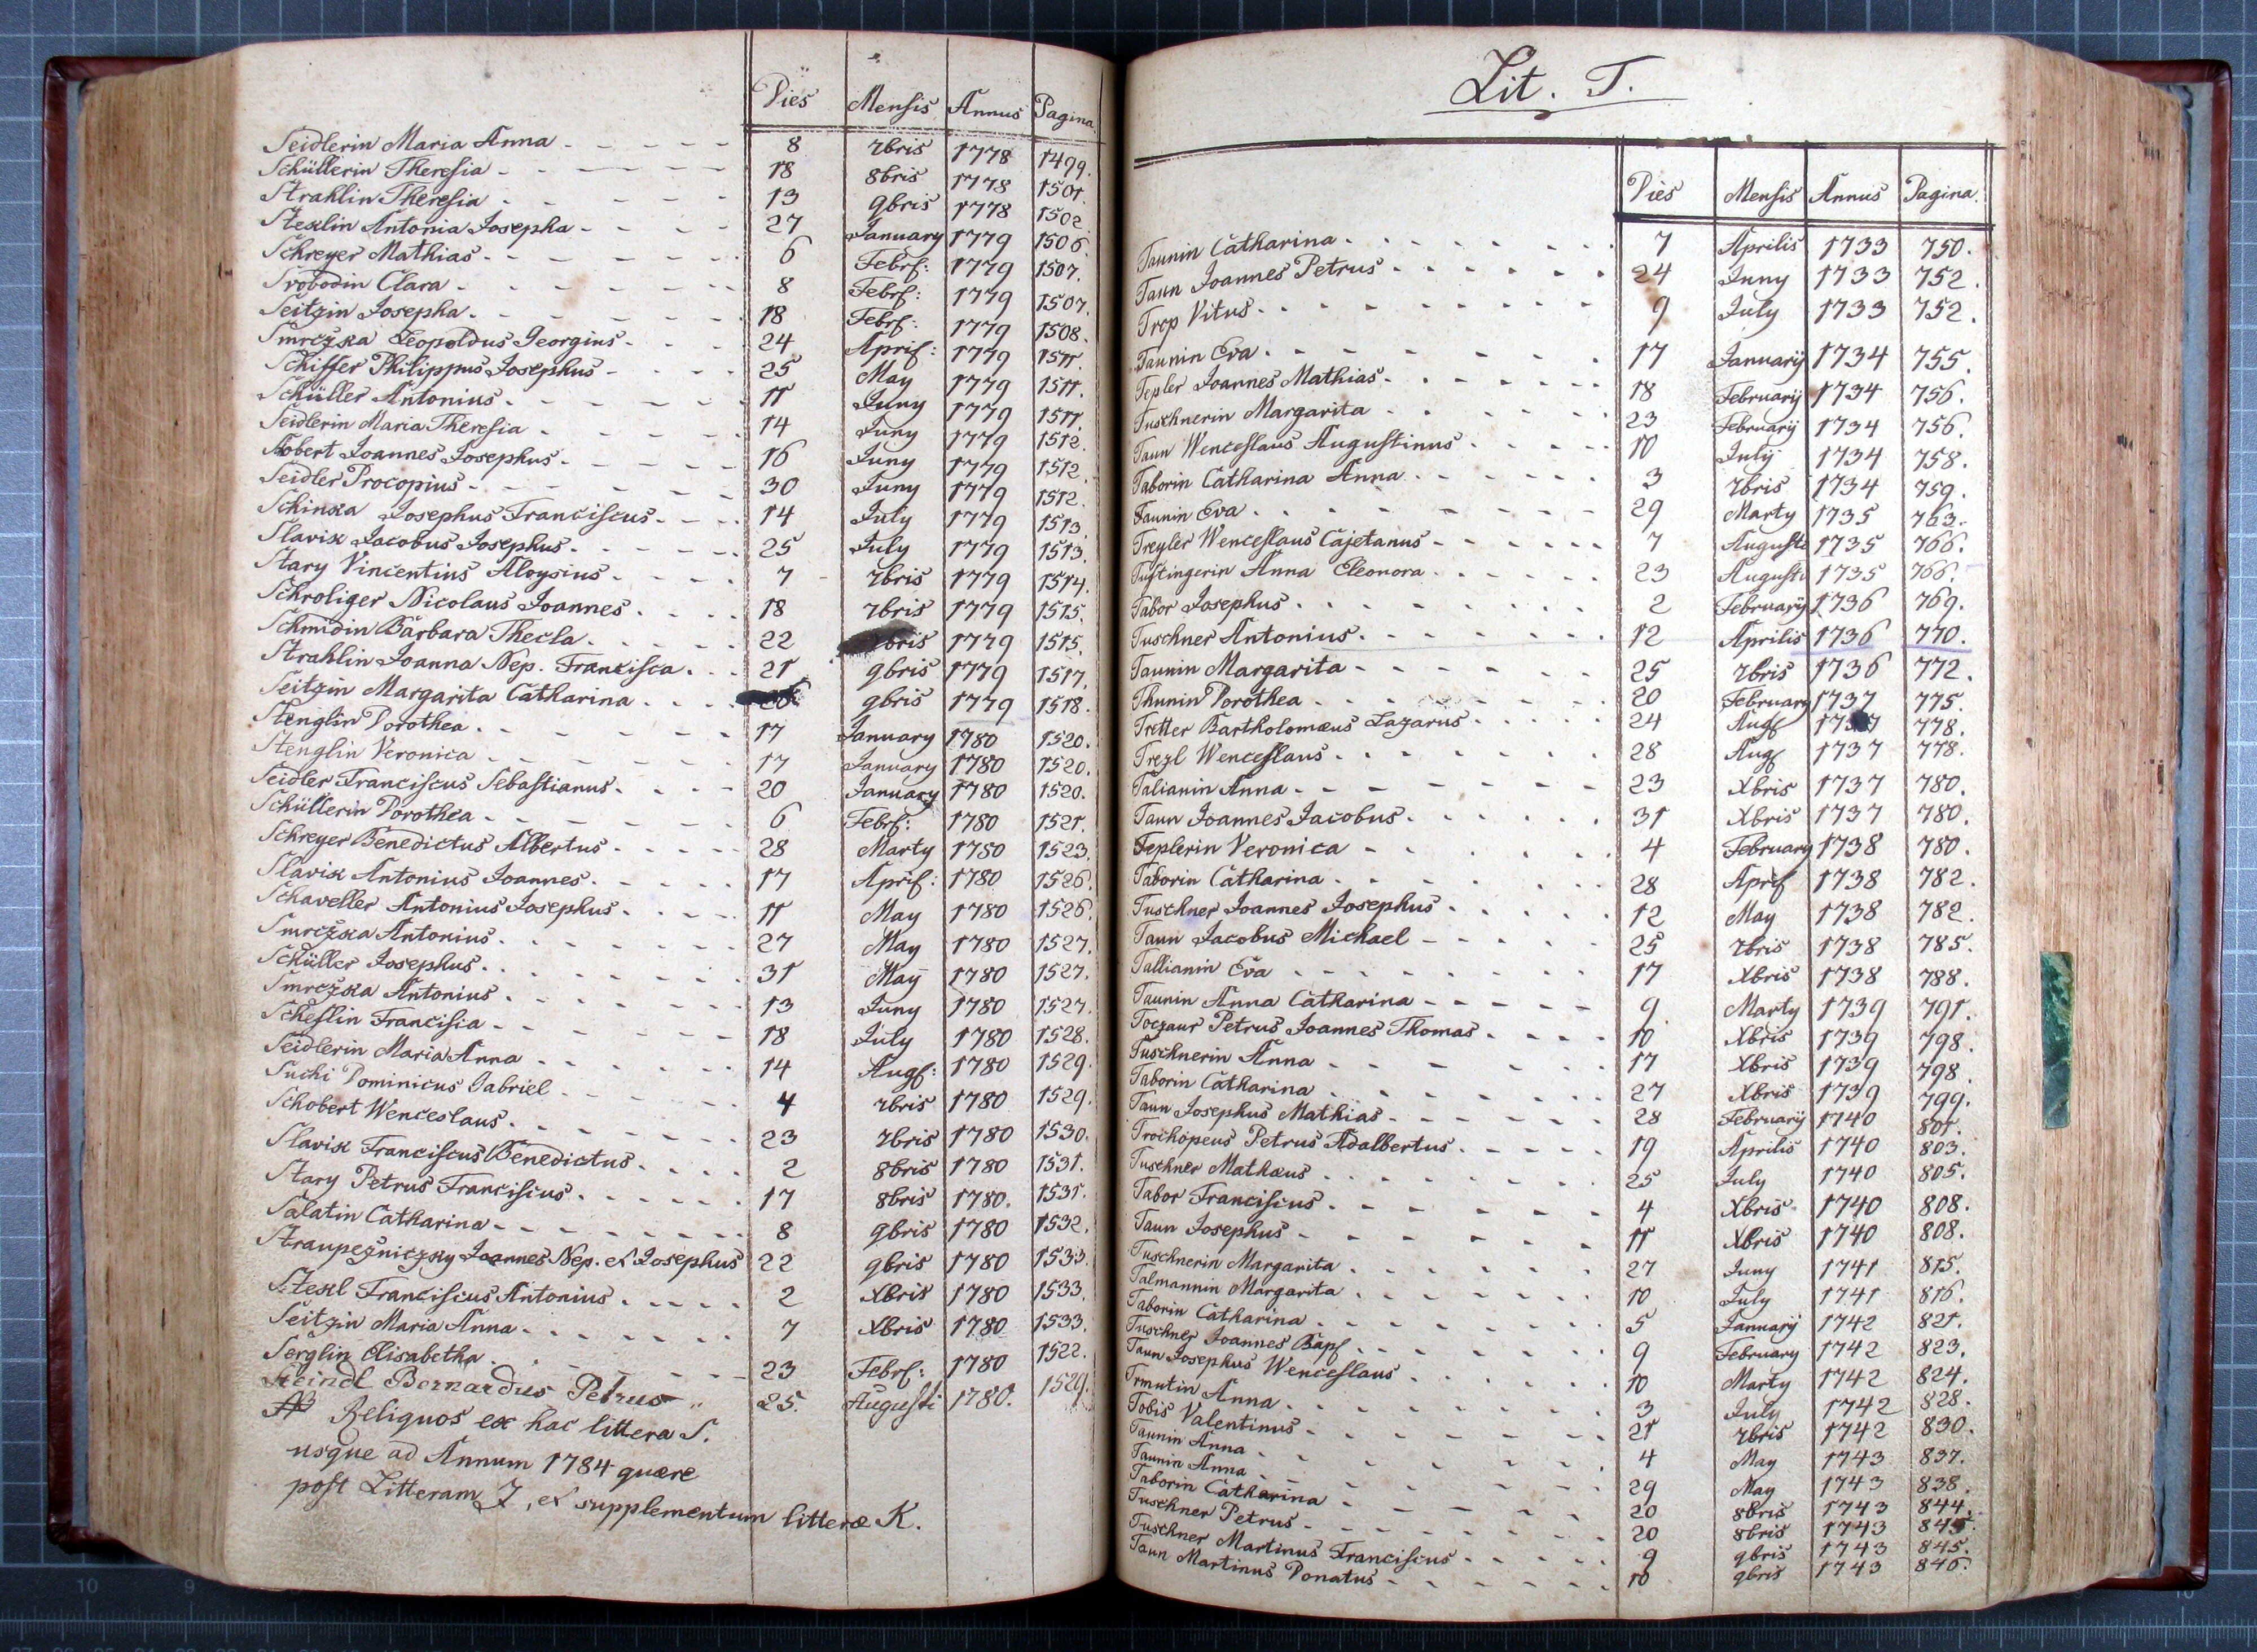 Dies Mensis Annus Pagina
Seidlerin Maria Anna - - - - - 8 7bris 1778 1499.
Schüllerin Theresia - - - - - - 18 8bris 1778 1501.
Strahlin Theresia - - - - - 13 9bris 1778 1502
Steklin Antonia Josepha - - - - 27 January 1779 1506
Schreyer Mathias - - - - - - 6 Febr: 1779 1507.
Svobodin Clara - - - - - - 8 Febr: 1779 1507.
Seitzin Josepha - - - - - - 18 Febr: 1779 1508.
Smrczka Leopoldus Georgius - - - 24 April: 1779 1511.
Schiffer Philippus Josephus - - - 25 May 1779 1511.
Schüller Antonius - - - - - 11 Juny 1779 1511.
Seidlerin Maria Theresia - - - - 14 Juny 1779 1512.
Josephus - - - - 16 Juny 1779 1512.
Seidler Procopius - - - - - 30 Juny 1779 1512.
Schinka Josephus Franciscus - - - 14 July 1779 1513.
Slavik Jacobus Josephus - - - - 25 July 1779 1513.
Stary Vincentius Aloysius - - - - 7 7bris 1779 1514.
Schroliger Nicolaus Joannes - - - - 18 7bris 1779 1515.
Schmidin Barbara Thecla - - - - 22 bris 1779 1515.
Strahlin Joanna Nep. Francisca - - - 21 9bris 1779 1517.
Seitzin Margarita Catharina - - - - 9bris 1779 1518.
Stenglin Dorothea - - - - - 17 January 1780 1520.
Stenglin Veronica - - - - - 17 January 1780 1520.
Seidler Franciscus Sebastianus - - - 20 January 1780 1520.
Schüllerin Dorothea - - - - - 6 Febr: 1780 1521.
Schreyer Benedictus Albertus - - - - 28 Marty 1780 1523.
Slavik Antonius Joannes - - - - 17 April: 1780 1526.
Schaveller Antonius Josephus - - - - 11 May 1780 1526.
Smrczka Antonius - - - - - 27 May 1780 1527.
Schüller Josephus - - - - - 31 May 1780 1527.
Smrczka Antonius - - - - - 13 Juny 1780 1527.
Francisia - - - - - 18 July 1780 1528.
Seidlerin Maria Anna - - - - - 14 Aug: 1780 1529.
Suchi Dominicus Gabriel - - - - 4 7bris 1780 1529.
Schobert Wenceslaus - - - - - 23 7bris 1780 1530.
Slavik Franciscus Benedictus - - - - 2 8bris 1780 1531.
Stary Petrus Franciscus - - - - 17 8bris 1780. 1531.
Salatin Catharina - - - - - 8 9bris 1780 1532.
Joannes Nep. et Josephus 22 9bris 1780 1533.
Stekl Franciscus Antonius - - - - 2 Xbris 1780 1533.
Seitzin Maria Anna - - - - - 7 Xbris 1780 1533.
Serglin Elisabetha - - - - - 23 Febr: 1780 1522.
Bernardus Petrus 25. Augusti 1780. 1529.
NB Reliquos ex hac littera S.
usque ad Annum 1784 quære
post Litteram Z, et supplementum litteræ K.
Lit. T.
Dies Mensis Annus Pagina.
Taunin Catharina - - - - - 7 Aprilis 1733 750.
Taun Joannes Petrus - - - - - 24 Juny 1733 752.
Trop Vitus - - - - - 9 July 1733 752.
Taunin Eva - - - - - 17 January 1734 755.
Tepler Joannes Mathias - - - - - 18 February 1734 756.
Tuschnerin Margarita - - - - - 23 February 1734 756.
Taun Wenceslaus Augustinus - - - - 10 July 1734 758.
Taborin Catharina Anna - - - - - 3 7bris 1734 759.
Taunin Eva - - - - - 29 Marty 1735 763.
Treyler Wenceslaus Cajetanus - - - - 7 Augusti 1735 766.
Tustingerin Anna Eleonora - - - - 23 Augusti 1735 766.
Tabor Josephus - - - - - 2 February 1736 769.
Tuschner Antonius - - - - - 12 Aprilis 1736 770.
Taunin Margarita - - - - - 25 7bris 1736 772.
Thunin Dorothea - - - - - 20 February 1737 775.
Tretter Bartholomæus Lazarus - - - - 24 Aug 1737 778.
Trezl Wenceslaus - - - - - 28 Aug 1737 778.
Talianin Anna - - - - - 23 Xbris 1737 780.
Taun Joannes Jacobus - - - - - 31 Xbris 1737 780.
Teplerin Veronica - - - - - 4 February 1738 780.
Taborin Catharina - - - - - 28 April 1738 782.
Tuschner Joannes Josephus - - - - 12 May 1738 782.
Taun Jacobus Michael - - - - - 25 7bris 1738 785.
Tallianin Eva - - - - - 17 Xbris 1738 788.
Taunin Anna Catharina - - - - - 9 Marty 1739 791.
Toczaur Petrus Joannes Thomas - - - - 10 Xbris 1739 798.
Tuschnerin Anna - - - - - 17 Xbris 1739 798.
Taborin Catharina - - - - - 27 Xbris 1739 799.
Taun Josephus Mathias - - - - - 28 February 1740 801.
Trochopeus Petrus Adalbertus - - - - 19 Aprilis 1740 803.
Tuschner Mathæus - - - - - 25 July 1740 805.
Tabor Franciscus - - - - - 4 Xbris 1740 808.
Taun Josephus - - - - - 11 Xbris 1740 808.
Tuschnerin Margarita - - - - - 27 Juny 1741 815.
Talmannin Margarita - - - - - 10 July 1741 816.
Taborin Catharina - - - - - 5 January 1742 821.
Tuschner Joannes Bap - - - - - 9 February 1742 823.
Taun Josephus Wenceslaus - - - - 10 Marty 1742 824.
Trmutin Anna - - - - - 3 July 1742 828.
Tobis Valentinus - - - - - 21 7bris 1742 830.
Taunin Anna - - - - - 4 May 1743 837.
Taunin Anna - - - - - 29 May 1743 838.
Taborin Catharina - - - - - 20 8bris 1743 844.
Tuschner Petrus - - - - - 20 8bris 1743 845.
Tuschner Martinus Franciscus - - - - 9 9bris 1743 845.
Taun Martinus Donatus - - - - 10 9bris 1743 846.